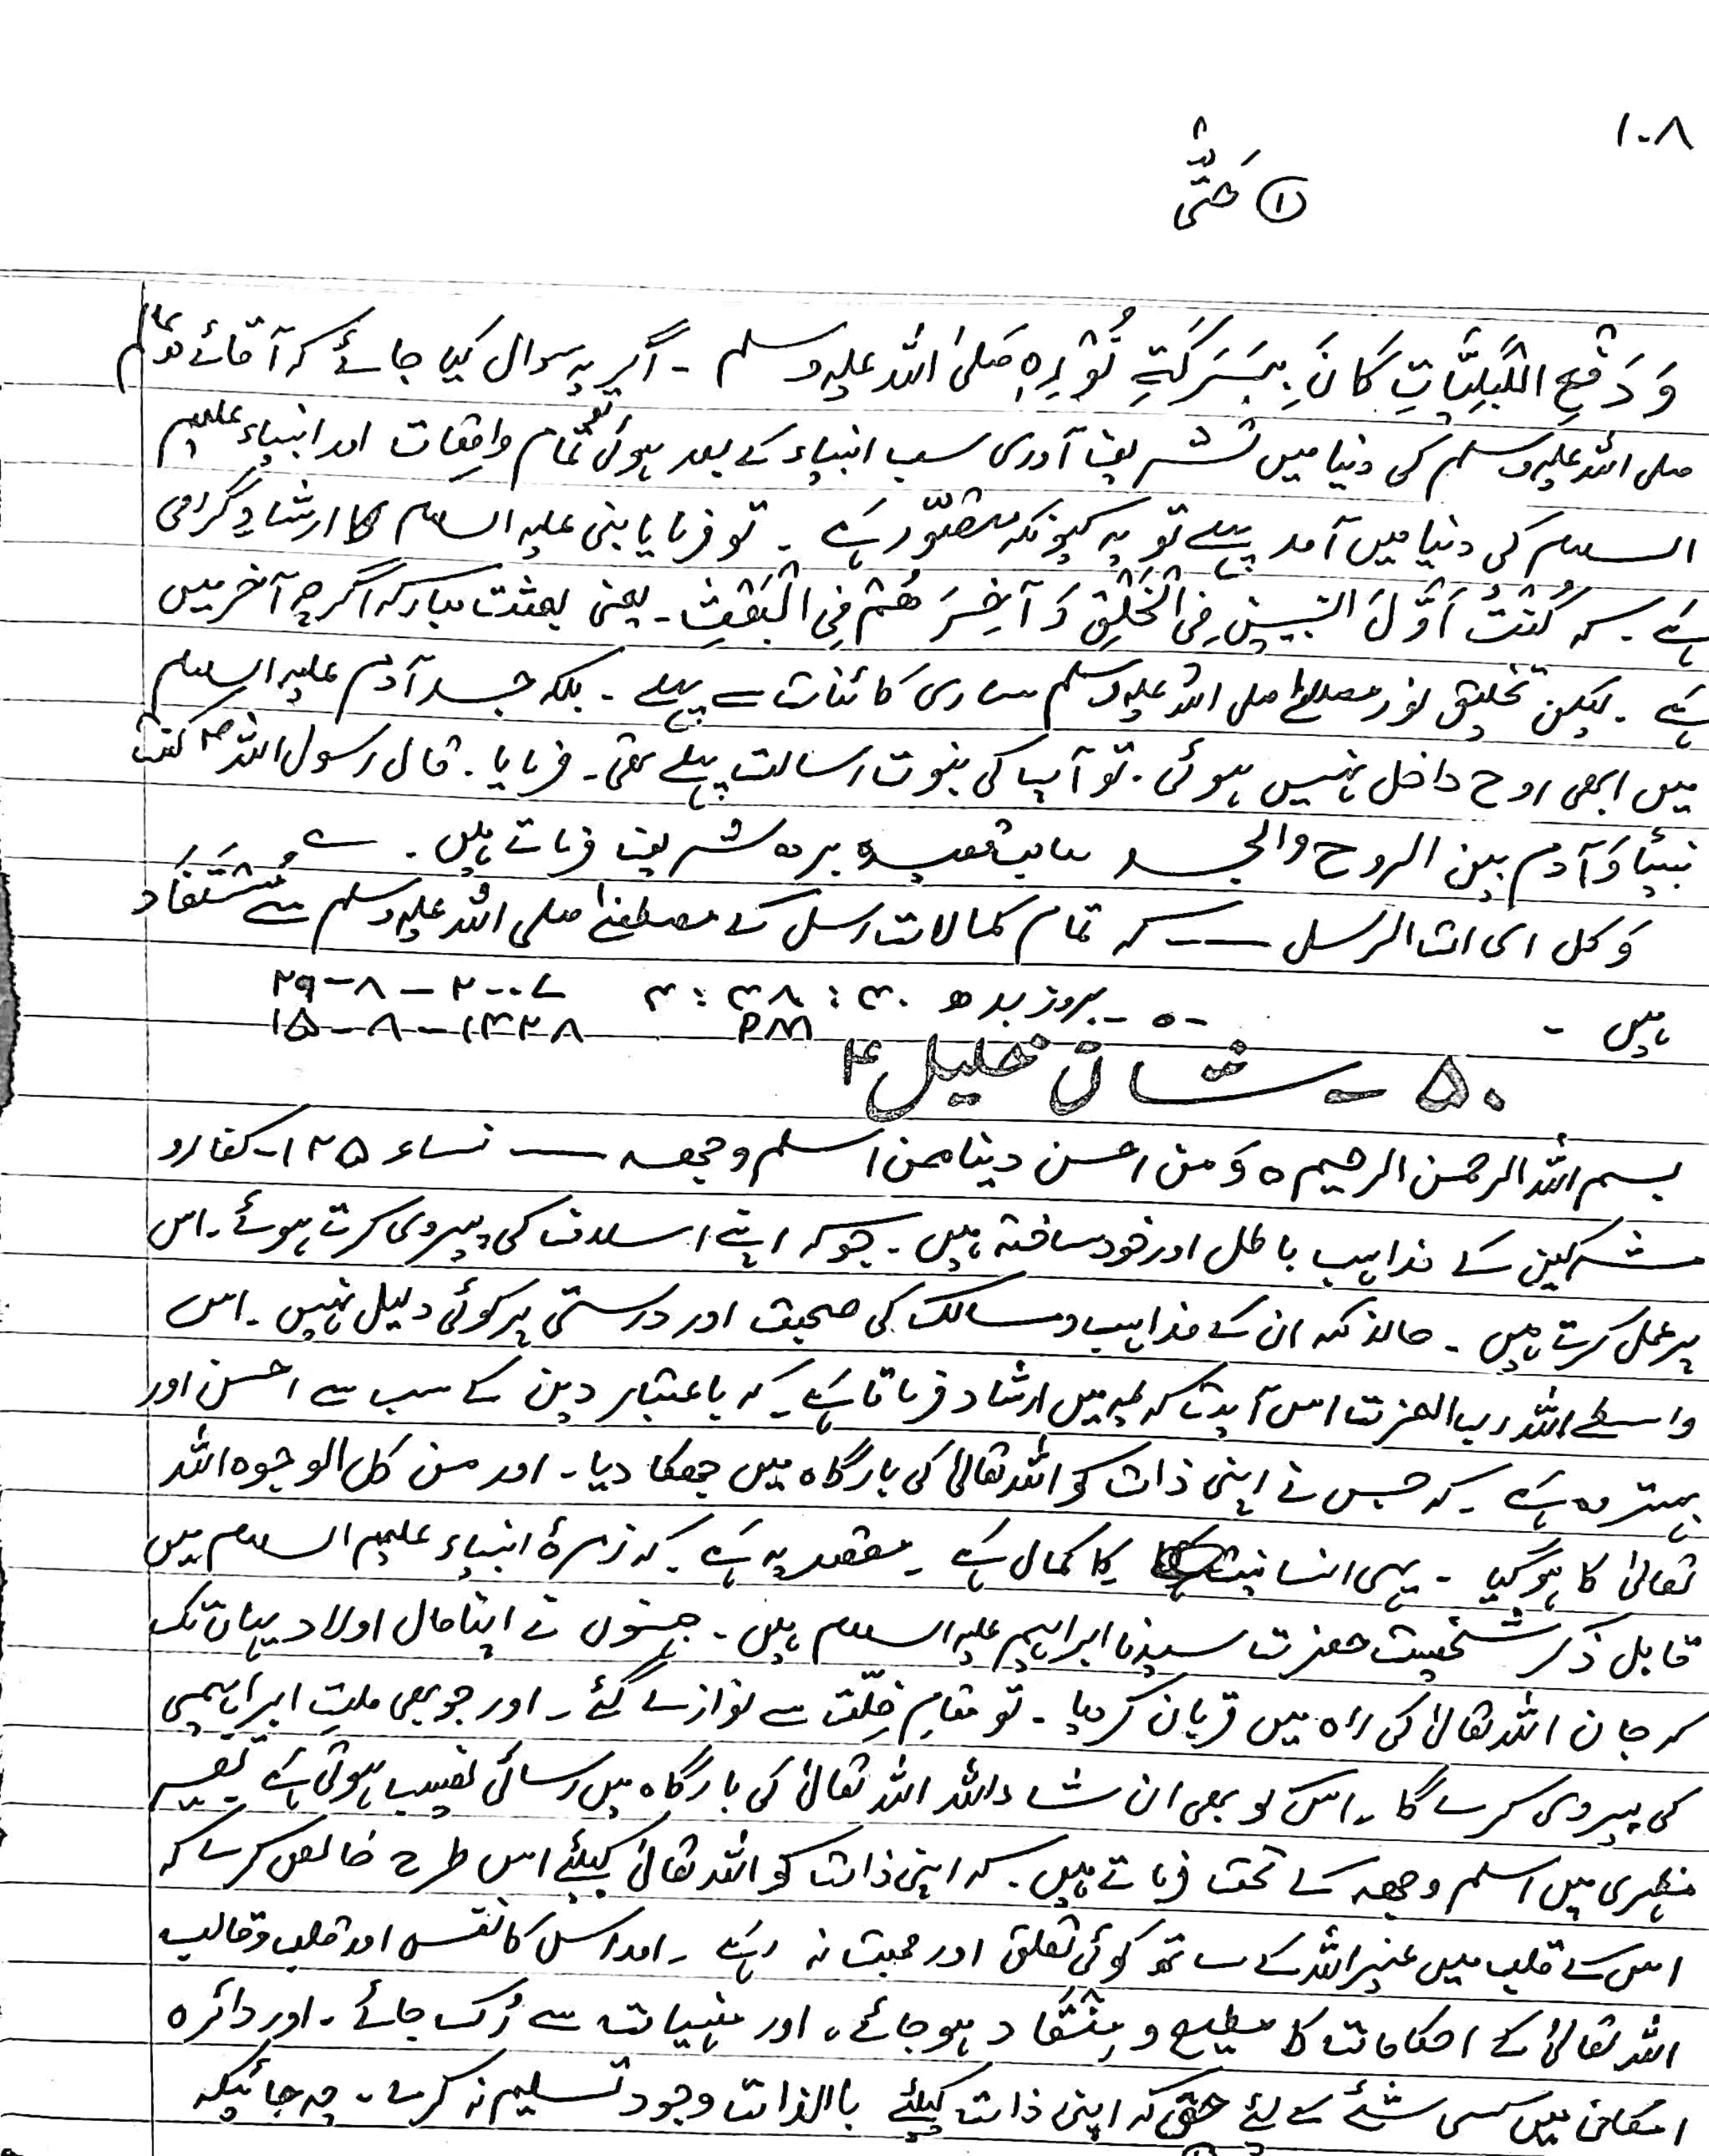 ۱۰۸
① حَتّٰی
وَ دَفْعِ الْبَلِیَّاتِ کَانَ بِبَرَکَةِ نُوْرِہٖ صَلَی اللہ علیہ وسلم ۔ اگر یہ سوال کیا جائے کہ آقائے دو عالم
صلی اللہ علیہ وسلم کی دنیا میں تشریف آوری سب انبیاء کے بعد ہوئی تو تمام واقعات اور انبیاء علیہم
السلام کی دنیا میں آمد پہلے تو یہ کیونکر متصوّر ہے ۔ تو فرمایا نبی علیہ السلام کا ارشادِ گرامی
ہے ۔ کہ کُنْتُ اَوَّلَ النبیین فِی الْخَلْقِ وَ آخِرَ ھُمْ فِی الْبَعْثِ ۔ یعنی بعثت مبارکہ اگرچہ آخر میں
ہے ۔ لیکن تخلیق نور مصطفےٰ صلی اللہ علیہ وسلم ساری کائنات سے پہلے ۔ بلکہ جسد آدم علیہ السلام
میں ابھی روح داخل نہیں ہوئی ۔ تو آپ کی نبوت رسالت پہلے تھی ۔ فرمایا ۔ قال رسول اللہ ؐ کنت
نبیًا وَ آدم بین الروح والجسد صاحب قصیدہ بردہ شریف فرماتے ہیں ۔ ؎
وَ کل ای اتٰ الرسل ــــ کہ تمام کمالات رسل کے مصطفےٰ صلی اللہ علیہ وسلم سے مُسْتَفَاد
ہیں ۔ ۔ہ۔ بروز بدھ ۳۰ : ۳۸ : ۳ PM ۲۰۰۷ – ۸ – ۲۹
۱۴۲۸ – ۸ – ۱۵
۵۰ ۔ شان خلیل ؑ
بسم اللہ الرحمن الرحیم ہ وَ من احسن دینا ممن اسلم وجھہ ــــ نساء ۱۲۵ ۔ کفار و
مشرکین کے مذاہب باطل اور خود ساختہ ہیں ۔ جو کہ اپنے اسلاف کی پیروی کرتے ہوئے ۔ اس
پر عمل کرتے ہیں ۔ حالانکہ ان کے مذاہب و مسالک کی صحت اور درستی پر کوئی دلیل نہیں ۔ اس
واسطے اللہ رب العزت اس آیت کریمہ میں ارشاد فرماتا ہے ۔ کہ باعتبار دین کے سب سے احسن اور
بہتر وہ ہے ۔ کہ جس نے اپنی ذات کو اللہ تعالیٰ کی بارگاہ میں جھکا دیا ۔ اور من کل الوجوہ اللہ
تعالیٰ کا ہو گیا ۔ یہی انسانیت کا کمال ہے ۔ مقصد یہ ہے ۔ کہ زمرۂ انبیاء علیہم السلام میں
قابل ذکر شخصیت حضرت سیدنا ابراہیم علیہ السلام ہیں ۔ جنہوں نے اپنا مال اولاد یہاں تک
کہ جان اللہ تعالیٰ کی راہ میں قربان کر دیا ۔ تو مقامِ خِلّت سے نوازے گئے ۔ اور جو بھی ملتِ ابراہیمی
کی پیروی کرے گا ۔ اس کو بھی ان شاء اللہ اللہ تعالیٰ کی بارگاہ میں رسائی نصیب ہوتی ہے تفسیر
مظہری میں اسلم وجھہ کے تحت فرماتے ہیں ۔ کہ اپنی ذات کو اللہ تعالیٰ کیلئے اس طرح خالص کرے کہ
اس کے قلب میں غیر اللہ کے ساتھ کوئی تعلق اور محبت نہ رہے ۔ اور اس کا نفس اور قلب و قالب
اللہ تعالیٰ کے احکامات کا مطیع و مُنْقَاد ہو جائے ، اور منہیات سے رُک جائے ۔ اور دائرہ
امکان میں کسی شئے کے لئے حتی کہ اپنی ذات کیلئے بالذات وجود تسلیم نہ کرے ۔ چہ جائیکہ